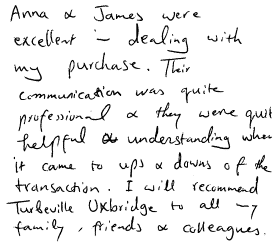 Anna & James were
excellent in dealing with
my purchase. Their
communication was quite
professional & they were quit
helpful & understanding when
it came to ups & downs of the
transaction. I will recommend
Turbeville Uxbridge to all my
family, friends & colleagues.